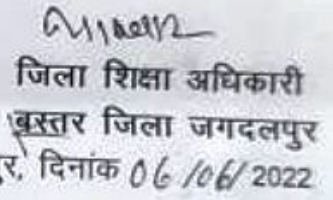 जिला शिक्षा अधिकारी
बस्तर जिला जगदलपुर
र, दिनांक 06/06/2022